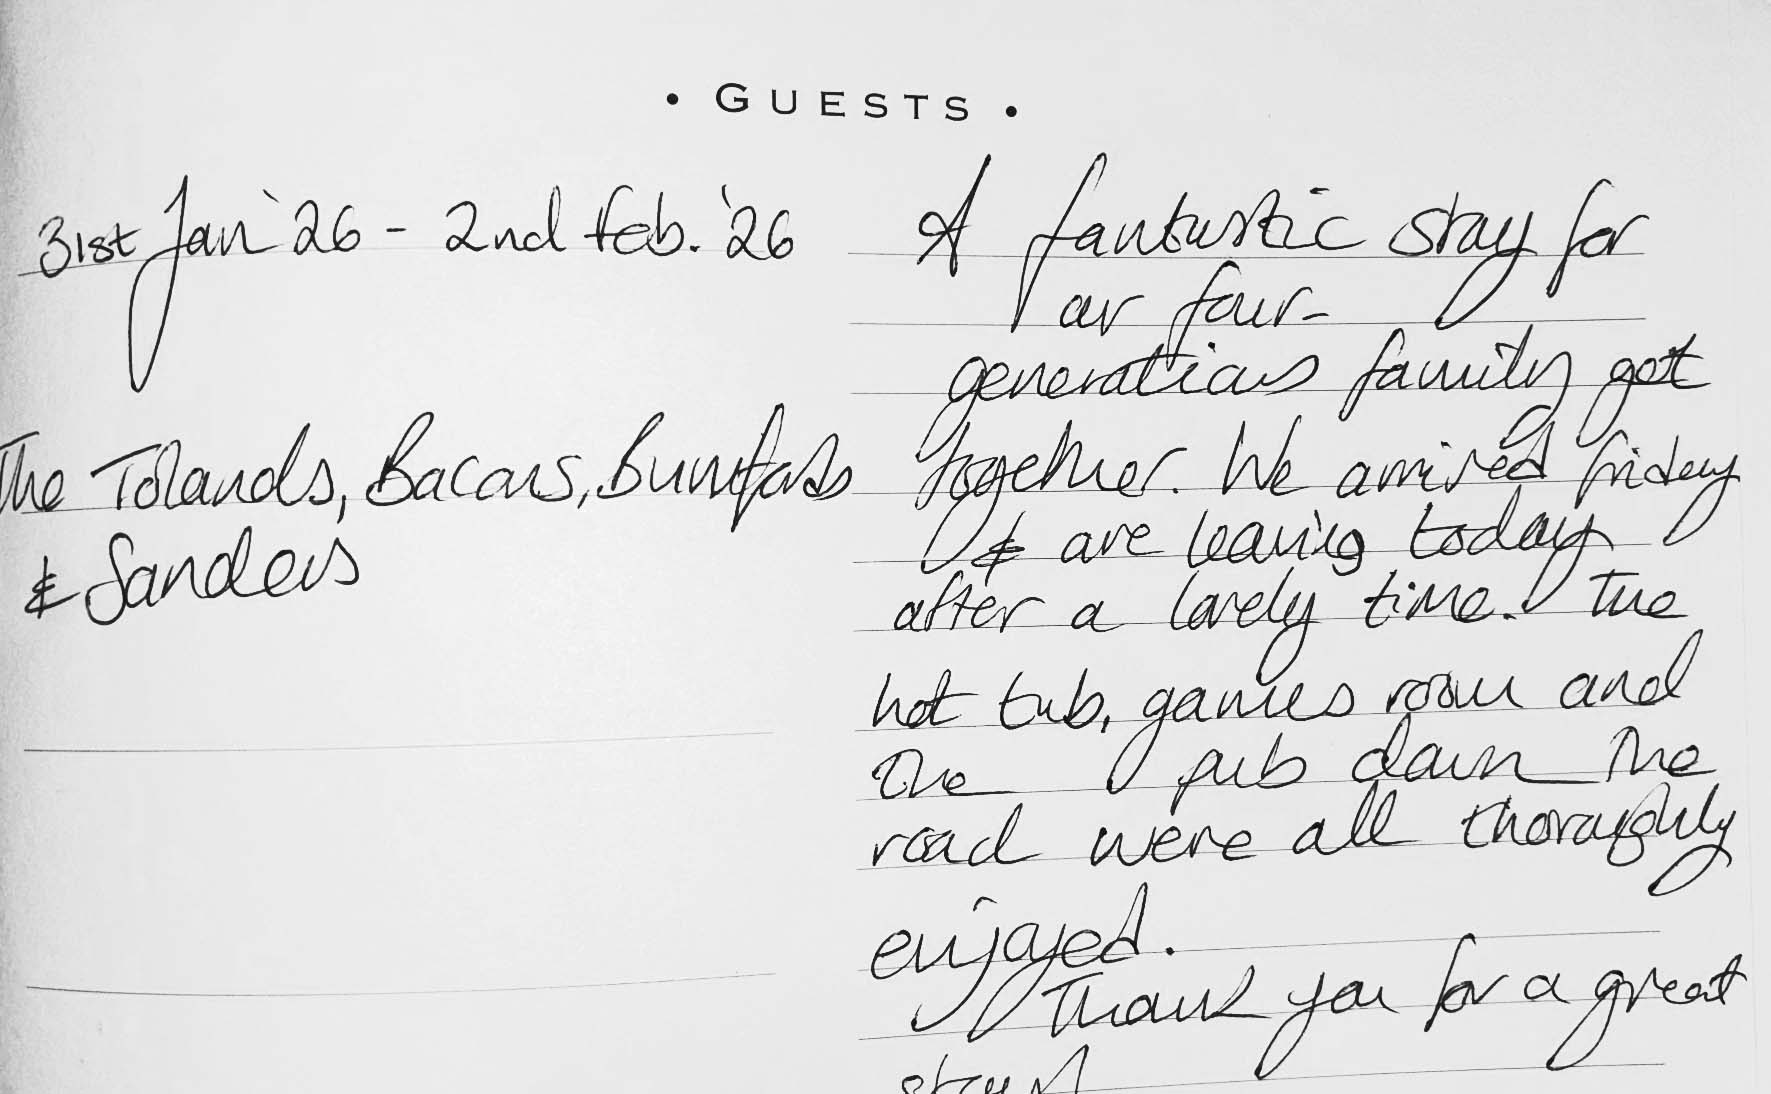 • GUESTS •
31st Jan '26 - 2nd Feb. '26
The Tolands, Bacons, Bumfords
& Sanders
A fantastic stay for
our four-
generations family get
together. We arrived friday
& are leaving today
after a lovely time. The
hot tub, games room and
the pub down the
road were all thoroughly
enjoyed.
Thank you for a great
stay